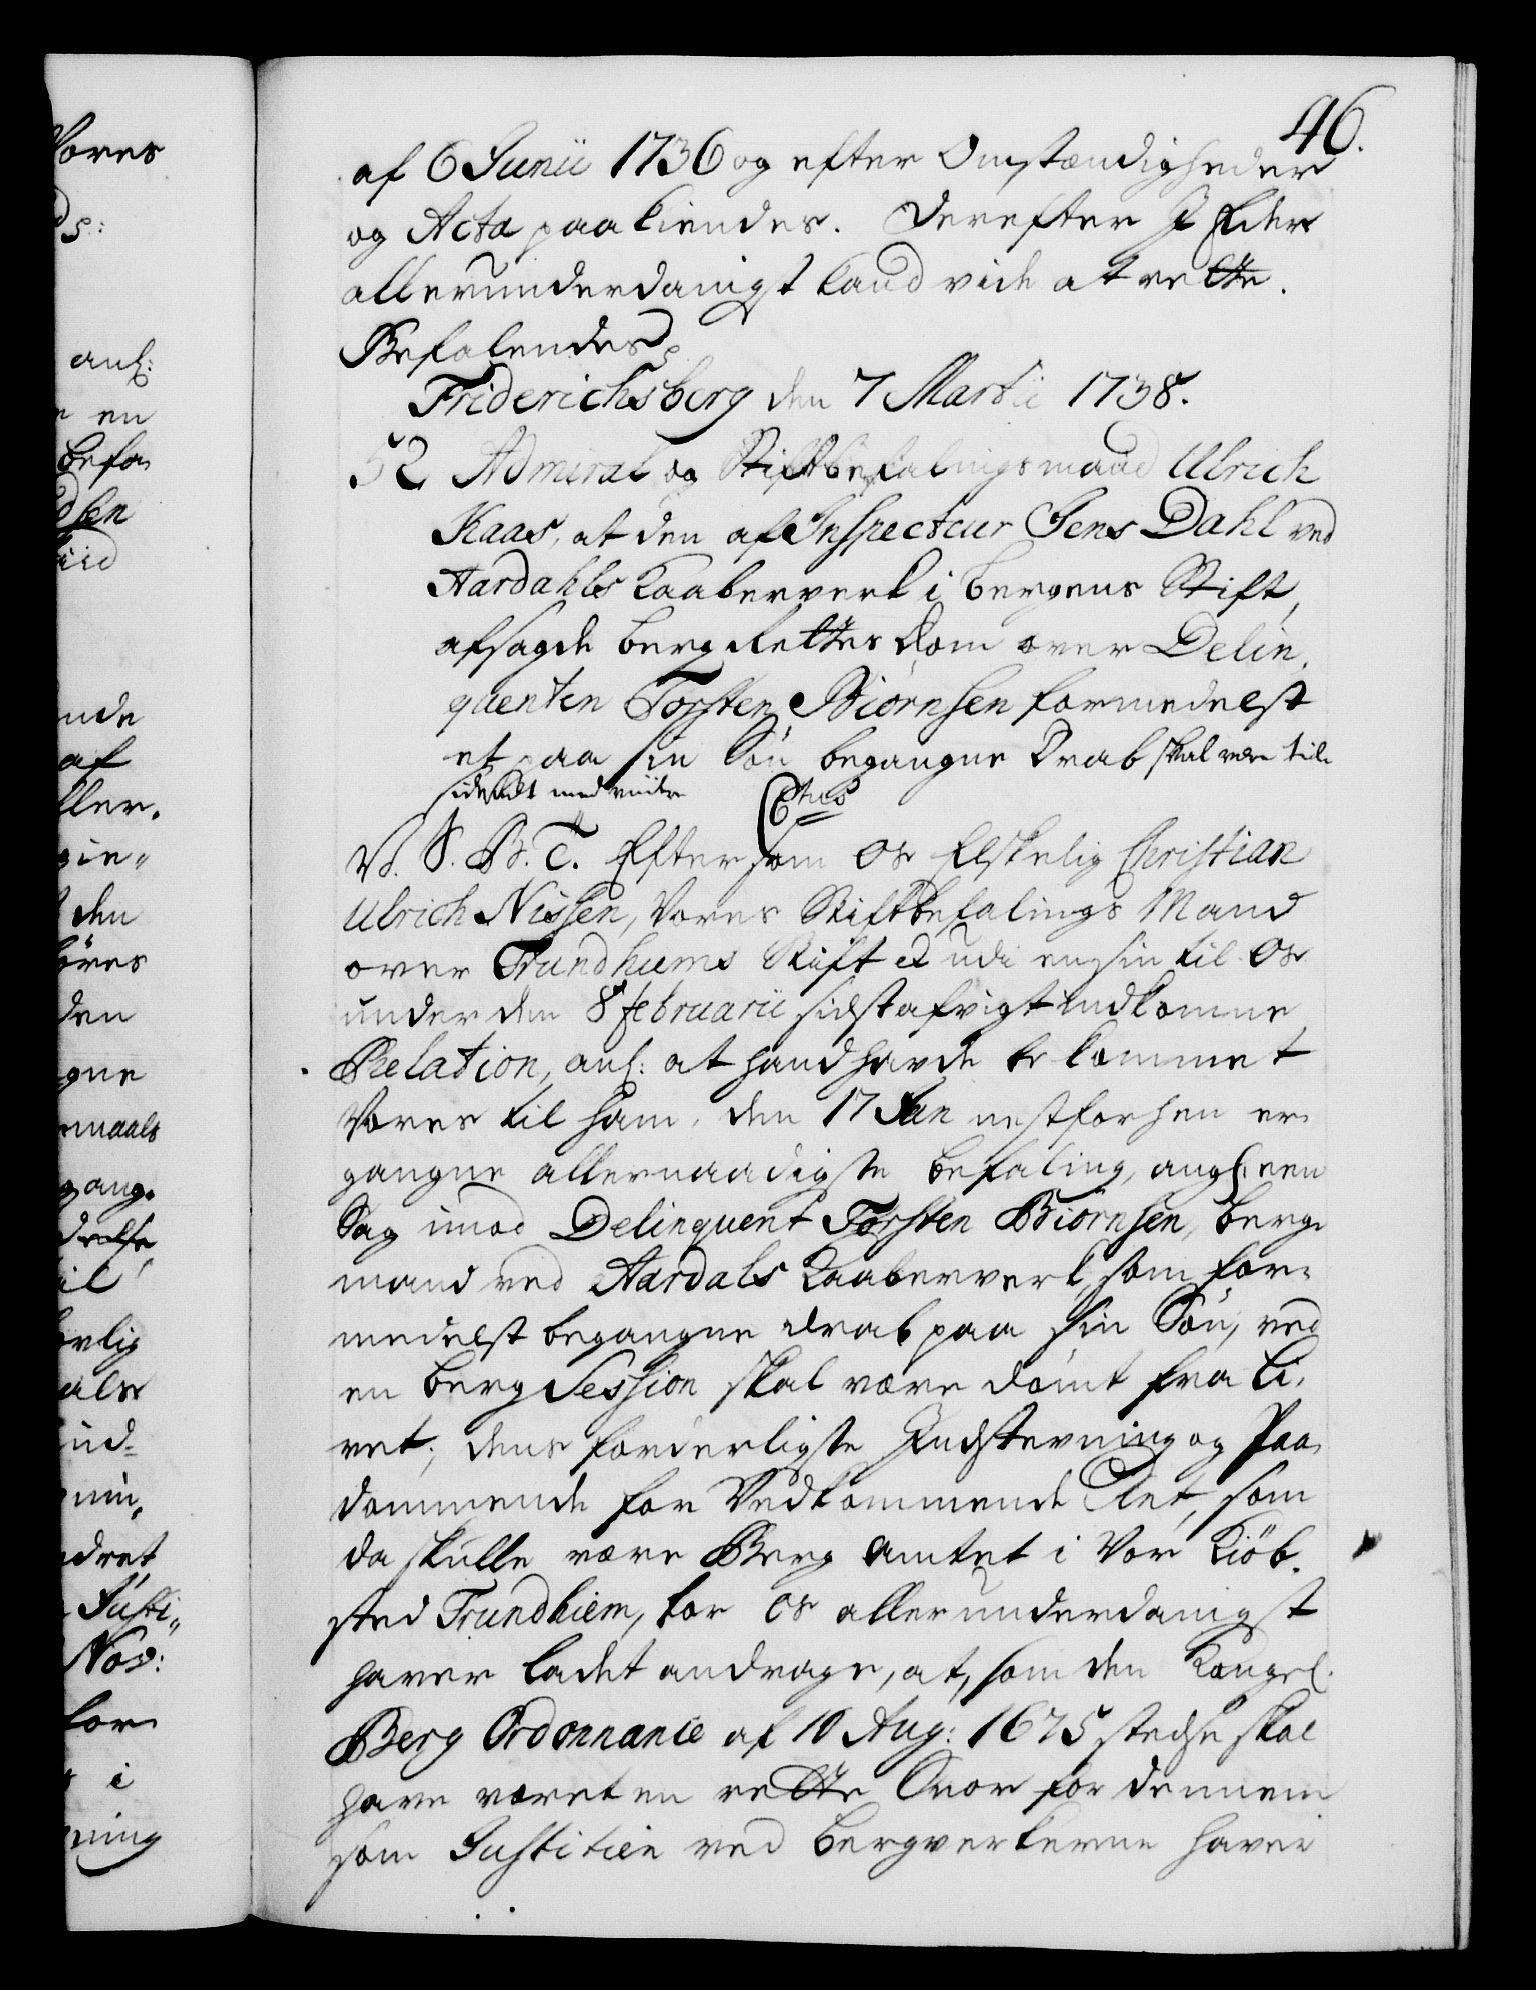 46.
af 6 Junii 1736 og efter Omstændigheder
og Acta paakiendes. Derefter I Eder
allerunderdanigst kand vide at rette.
Befalendes
Friderichsberg den 7 Martii 1738.
52 Admiral og Stiftbefalingsmand Ulrich
Kaas, at den af Inspecteur Jens Dahl ved
Aardahls Kaaberverk i Bergens Stift,
afsagde Berg Rettes Dom over Delin,
quenten Torsten Biørnsen formedelst
et paa sin Søn begangne Drab skal være til
sidesadt med viidere
V. S. B. T. Eftersom Os Elskelig Christian
Ulrich Nissen, Vores Stiftbefalings Mand
over Trundhiems Stift et udi en sin til Os
under den 8 Februarii sidst afvigt indkomne
Relation, anl: at hand havde bekommet
Vores til ham, den 17 Jan nestforhen er
gangne allernaadigste Befaling, angl: een
Sag imod Delinquent Torsten Biørnsen, Berg
mand ved Aardals Kaaberverk, som for,
medelst begangne drab paa sin Søn, ved
en Berg Session skal være dømt fra Li,
vet; dens forderligste Indstevning og Paa,
dømmende for Vedkommende Ret, som
da skulle være Berg Amtet i Vor Kiøb,
sted Trundhiem, for Os allerunderdanigst
haver ladet andrage, at, som den Kongel.
Berg Ordonnance af 10 Aug: 1675 stedse skal
have været en rette Snor for dennem
som Justitien ved Bergverkerne haver